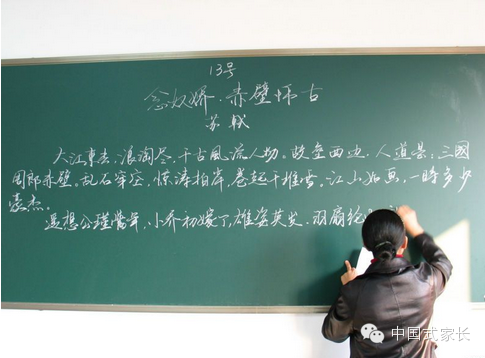 13号
念奴娇·赤壁怀古
苏轼
大江東去,浪淘尽,千古風流人物。故垒西边,人道是:三國
周郎赤壁。乱石穿空,惊涛拍岸,卷起千堆雪,江山如画,一時多少
豪杰。
遥想公瑾當年,小乔初嫁了,雄姿英发,羽扇纶
中国式家长